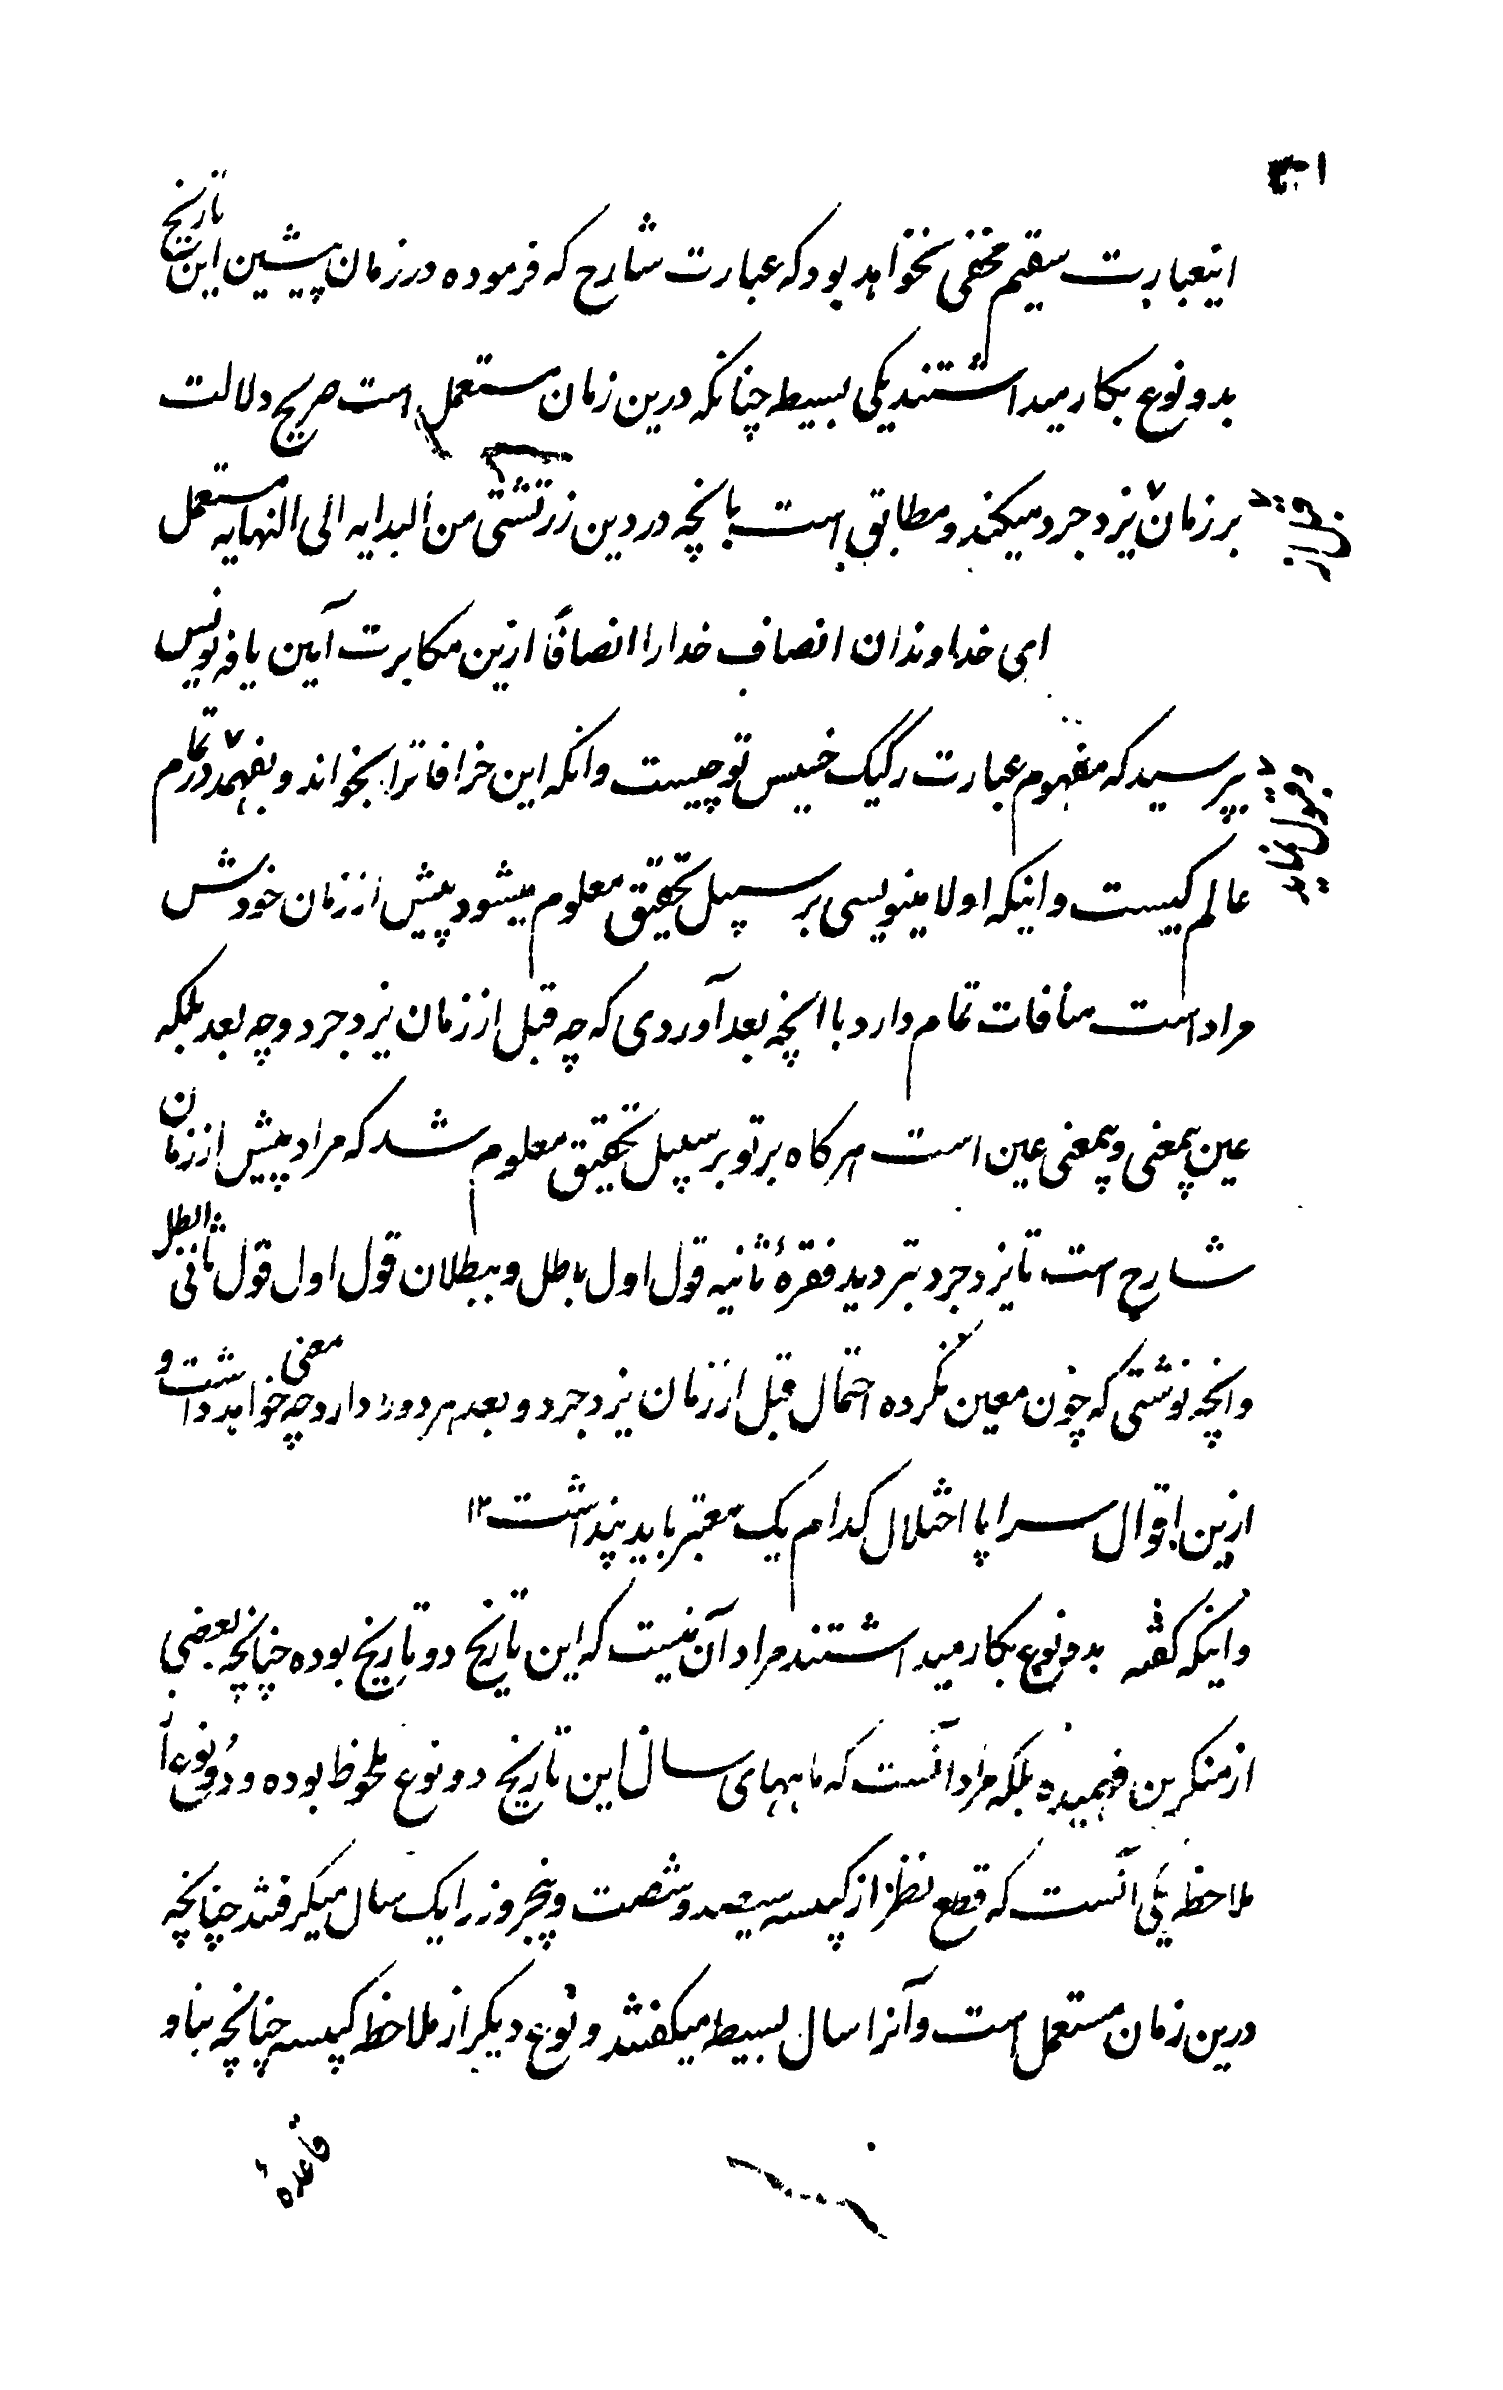 اینعبارت سقیم مخفی نخواهد بود که عبارت شارح که فرموده در زمان پیشین این تاریخ
بدو نوع بکار میداشتند یکی بسیط چنانکه درین زمان مستعمل است صریح دلالت
بر زمان یزدجرد میکند و مطابق است بانچه در دین زرتشتی من البدایه الی النهایه مستعمل
ای خداوندان انصاف خدارا انصافاً ازین مکابرت آیین یافه نویس
بپرسید که مفهوم عبارت رکیک خسیس تو چیست وانکه این خرافاترا بخواند و بفهمد در تمام
عالم کیست واینکه اولا مینویسی بر سبیل تحقیق معلوم میشود پیش از زمان خودش
مراد است منافات تمام دارد با انچه بعد آوردی که چه قبل از زمان یزدجرد و چه بعد بلکه
عین بیمعنی و بیمعنی عین است هرکاه بر تو بر سبیل تحقیق معلوم شد که مراد پیش از زمان
شارح است تا یزدجرد بتردید فقرهٔ ثانیه قول اول باطل و ببطلان قول اول قول ثانی
وانچه نوشتی که چون معین نکرده احتمال قبل از زمان یزدجرد و بعد هر دو را دارد چه معنی خواهد داشت و
ازین اقوال سراپا اختلال کدام یک معتبر باید پنداشت ۱۲
واینکه کفته بدو نوع بکار میداشتند مراد آن نیست که این تاریخ دو تاریخ بوده چنانچه بعضی
از منکرین فهمیده بلکه مراد آنست که ماههای سال این تاریخ دو نوع ملحوظ بوده و دو نوع
ملاحظه یکی آنست که قطع نظر از کبیسه سیصد و شصت و پنجروز را یک سال میکرفتند چنانچه
درین زمان مستعمل است وآنرا سال بسیط میکفتند و نوع دیکر از ملاحظه کبیسه چنانچه بناو
قاعدهٔ